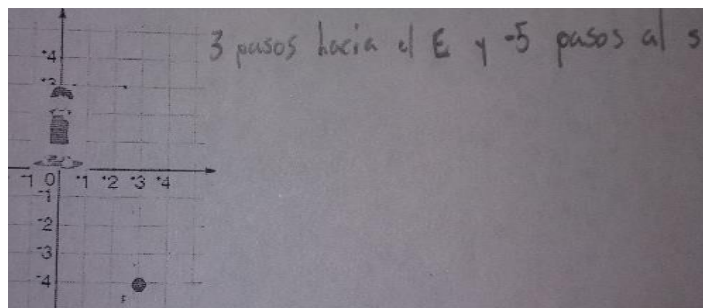 3 pasos hacia el E y -5 pasos al s
+4
+3
-1 0 +1 +2 +3 +4
-1
-2
-3
-4
F